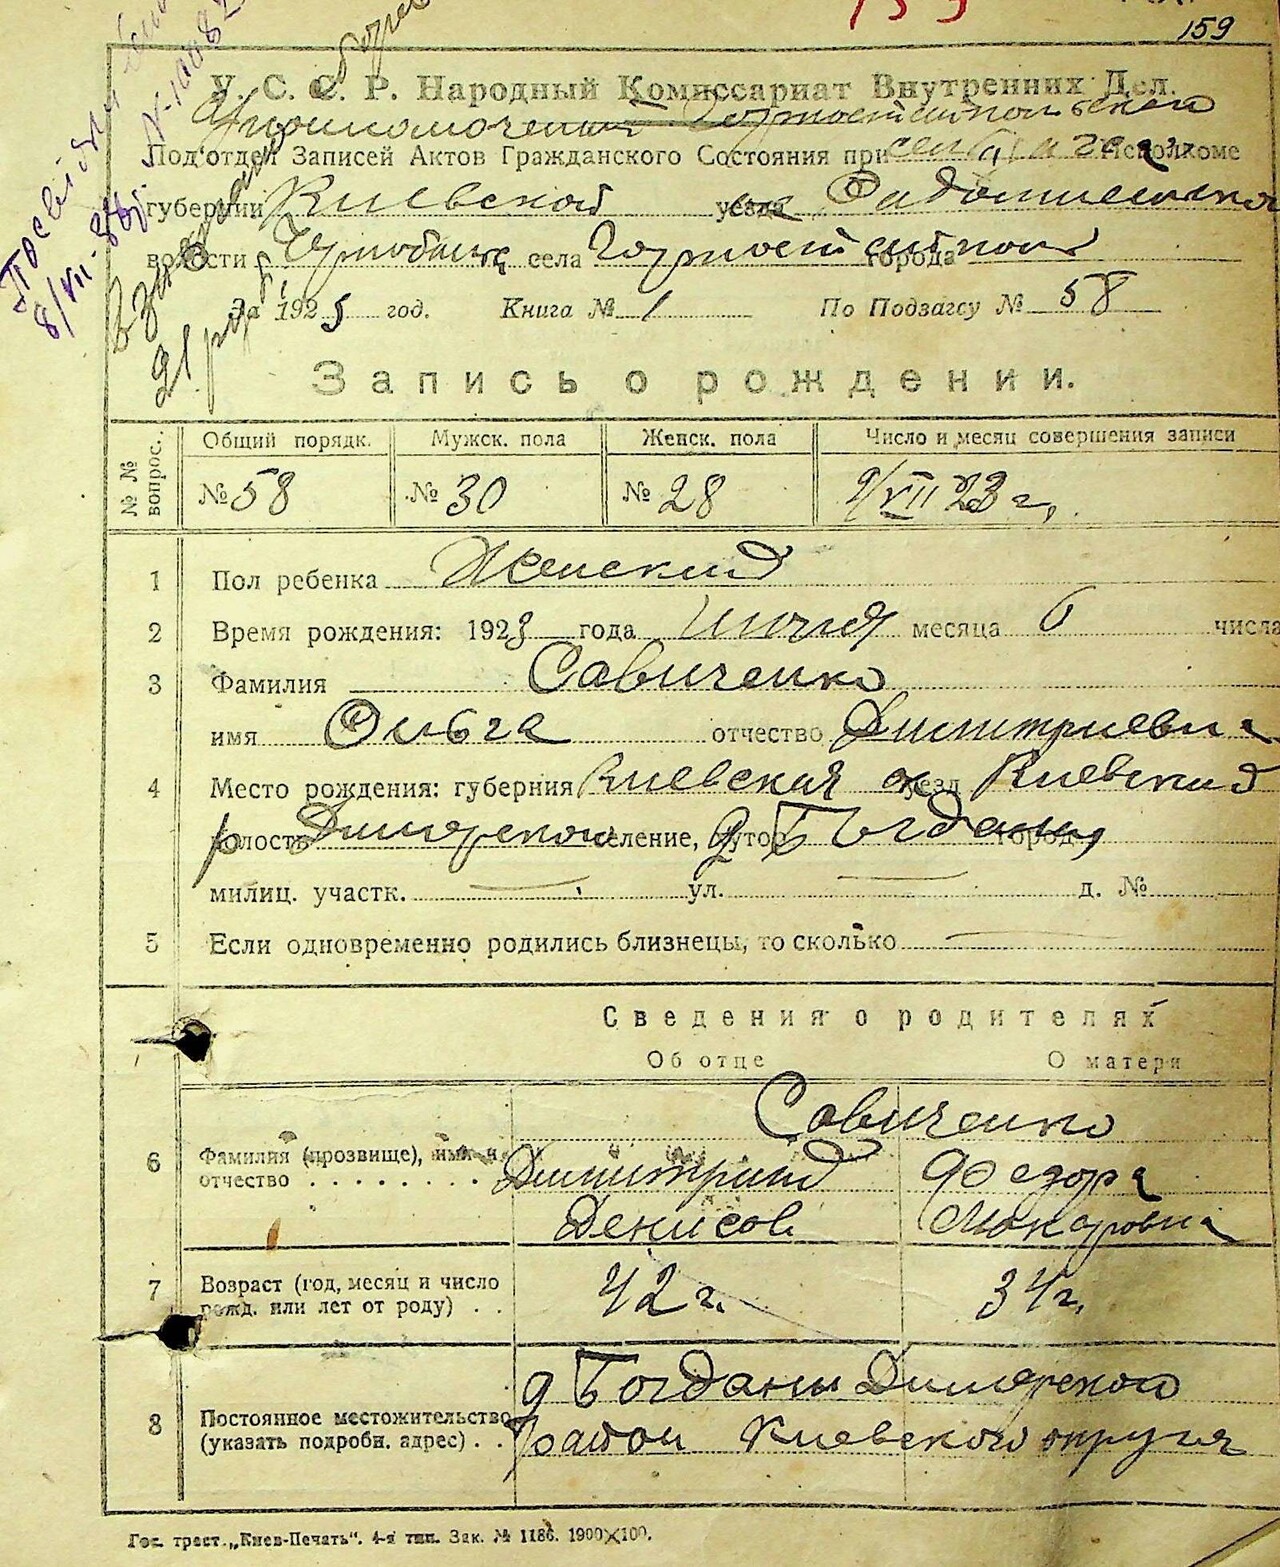 159
У. С. С. Р. Народный Комиссариат Внутренних Дел.
Под'отдел Записей Актов Гражданского Состояния при Исполкоме
губернии Киевской уезда
волости села города
За 1925 год. Книга № 1 По Подзагсу № 58
Запись о рождении.
№ № вопрос.
Общий порядк. Мужск. пола Женск. пола Число и месяц совершения записи
№ 58 № 30 № 28 9/VII 23 г.
1 Пол ребенка Женский
2 Время рождения: 1923 года месяца 6 числа
3 Фамилия Савиченко
имя Ольга отчество Димитриевна
4 Место рождения: губерния Киевская уезд Киевский
волость Димерского селение, хутор д Богданы город
милиц. участк. ул. д. №
5 Если одновременно родились близнецы, то сколько
Сведения о родителях
Об отце О матери
Савиченко
6 Фамилия (прозвище), имя и Димитрий Федора
отчество Денисов Макаровна
7 Возраст (год, месяц и число 42 г. 34 г.
рожд. или лет от роду)
д Богданы Димерского
8 Постоянное местожительство
(указать подробн. адрес) район Киевского округа
Гос. трест. „Киев-Печать". 4-я тип. Зак. № 1186. 1900×100.